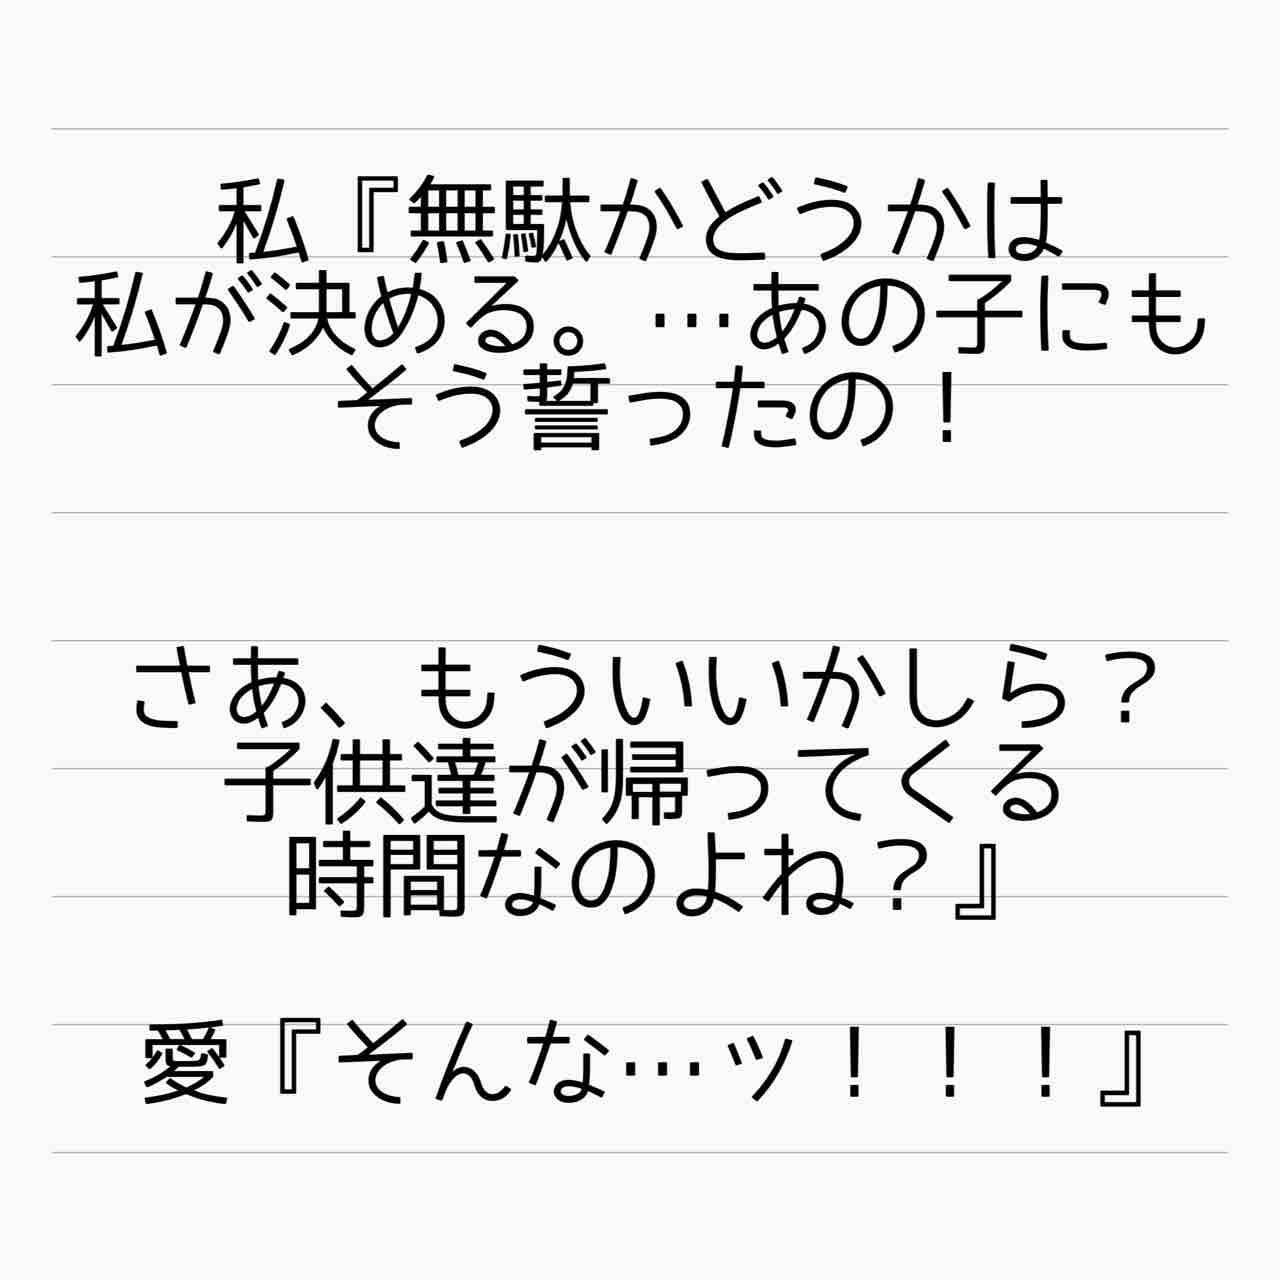 私『無駄かどうかは
私が決める。…あの子にも
そう誓ったの！
さあ、もういいかしら？
子供達が帰ってくる
時間なのよね？』
愛『そんな…ッ！！！』